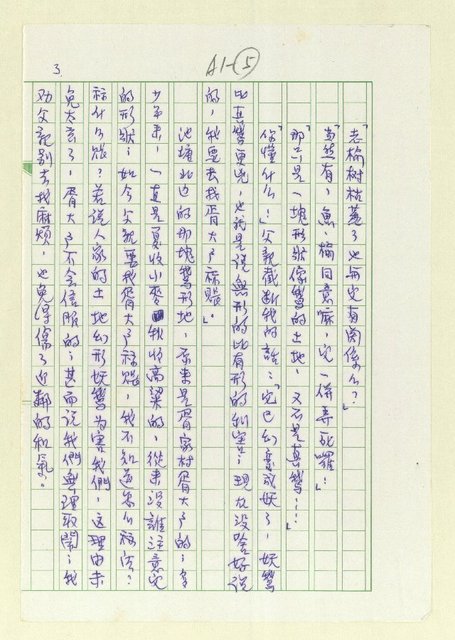 A1-⑤
3.
「老榆樹枯萎了也與它有關係么？」
「當然有，魚、榆同意嘛，它一併弄死囉！」
「那只是一塊形狀像鱉的土地，又不是真鱉……」
「你懂什么！」父親截斷我的話：「它已幻變成妖了，妖鱉
比真鱉更兇，也就是說無形的比有形的利害！現在沒啥好說
的，我要去找胥大戶祘賬。」
池塘北边的那塊鱉形地，原來是胥家村胥大戶的，多
少年來，一直是夏收小麥秋收高粱的，從來沒誰注意它
的形狀，如今父親要找胥大戶祘賬，我不知道怎么祘法？
祘什么賬？若說人家的土地幻形妖鱉為害我們，這理由未
免太玄了，胥大戶不会信服的，甚而說我們無理取鬧，我
劝父親別去找麻煩，也免得傷了近鄰的和氣。